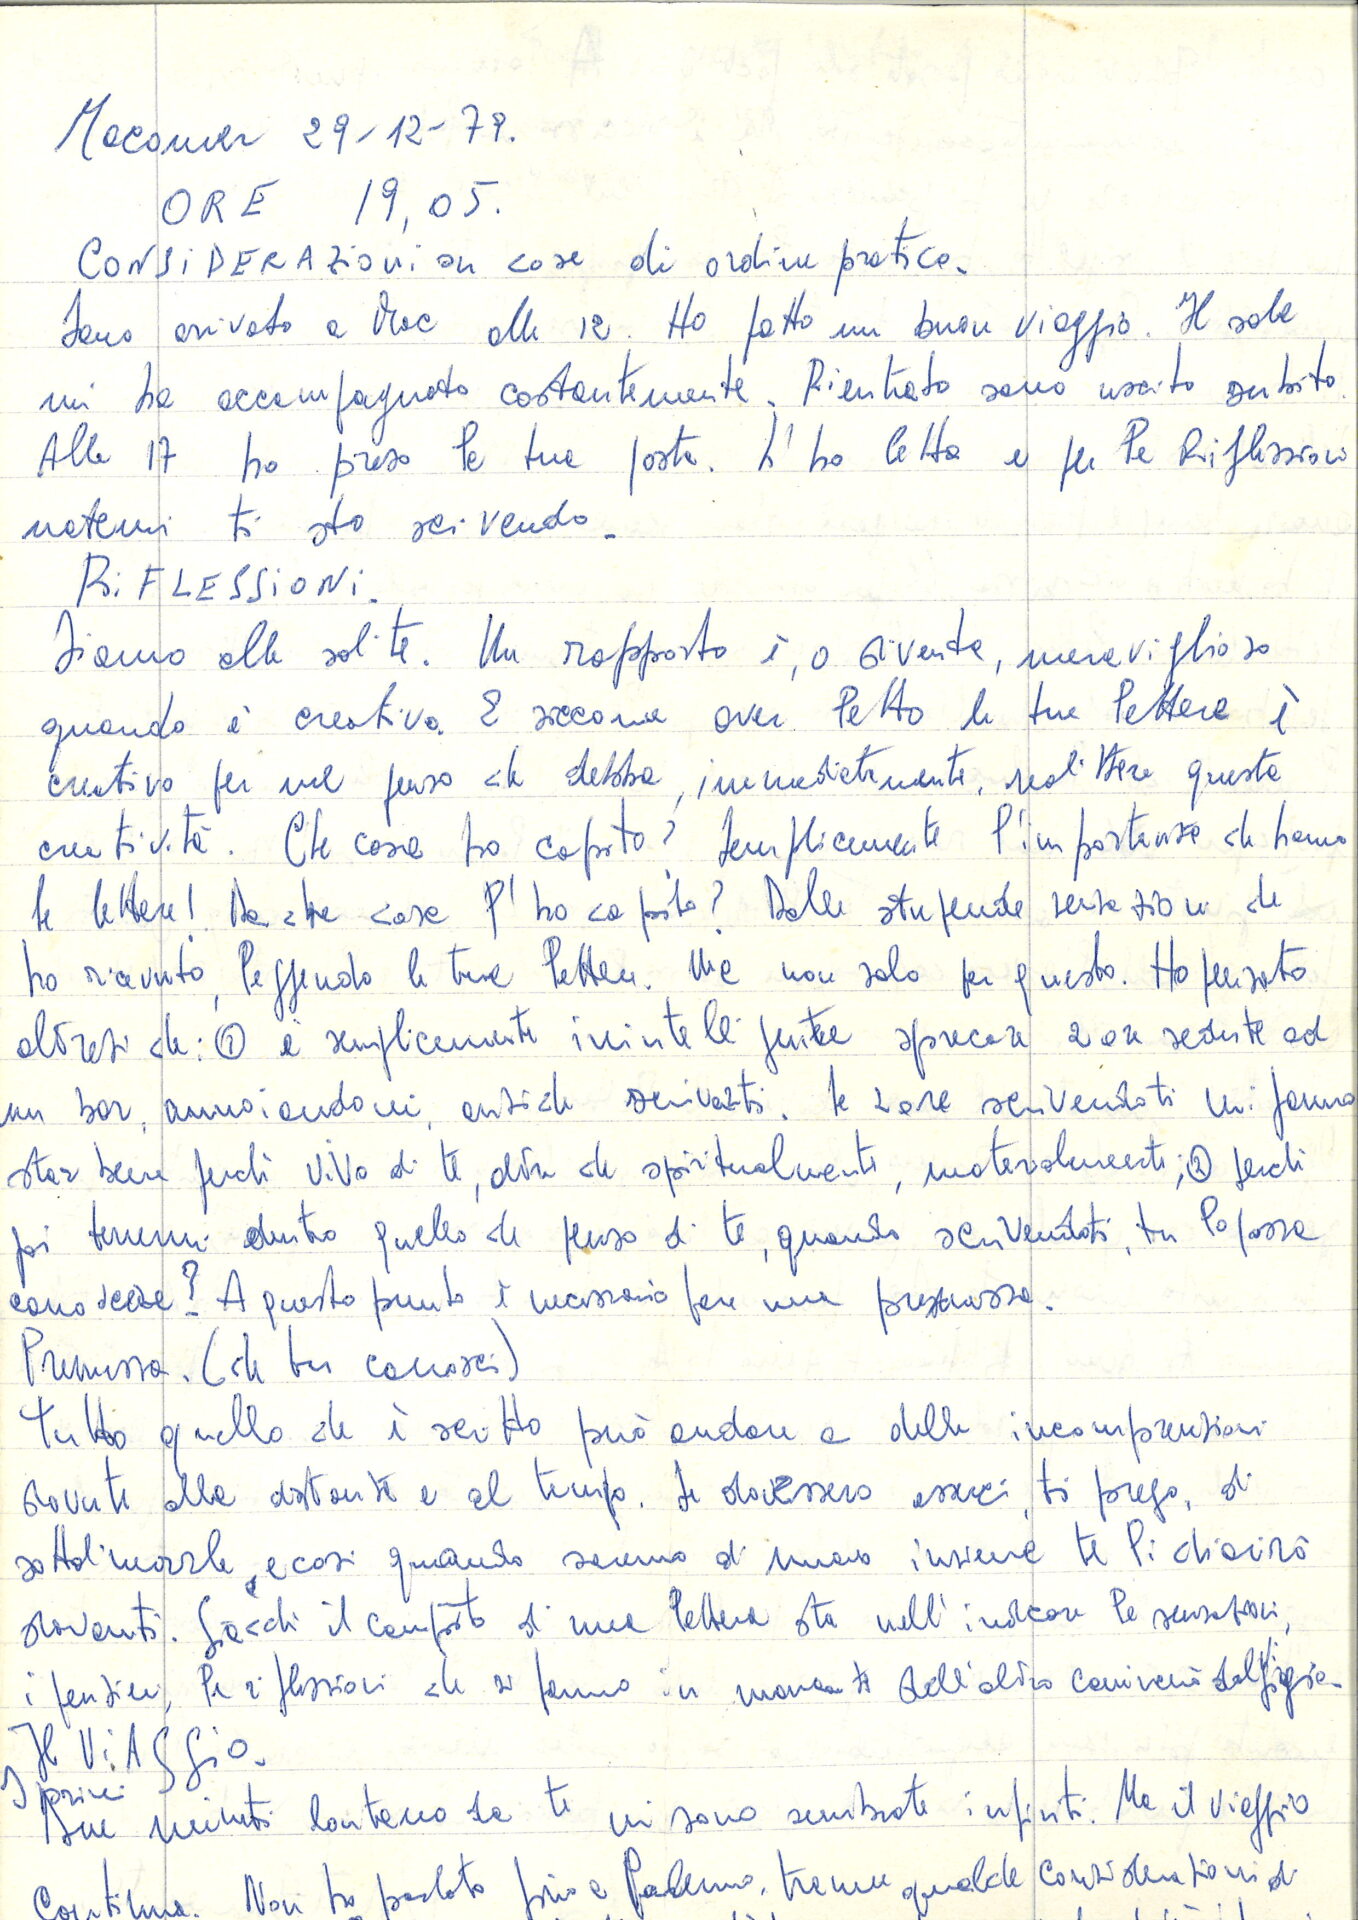 Macomer 29-12-79.
ORE 19,05.
CONSIDERAZIONI su cose di ordine pratico.
Sono arrivato a Mac alle 12. Ho fatto un buon viaggio. Il sole
mi ha accompagnato costantemente. Rientrato sono uscito subito.
Alle 17 ho preso la tua posta. L'ho letta e per le Riflessioni
natemi ti sto scrivendo.
RIFLESSIONI.
Siamo alle solite. Un rapporto è, o diventa, meraviglioso
quando è creativo. E siccome aver letto le tue lettere è
creativo per me penso che debba, immediatamente, riflettere questa
creatività. Che cosa ho capito? Semplicemente l'importanza che hanno
le lettere! Da che cosa l'ho capito? Dalle stupende sensazioni che
ho ricevuto, leggendo le tue lettere. Ma non solo per questo. Ho pensato
altresì che: ① è semplicemente inintelligente sprecare 2 ore seduto ad
un bar, annoiandomi, anziché scriverti. Le 2 ore scrivendoti mi fanno
star bene perché vivo di te, oltre che spiritualmente, materialmente; ② perché
poi tenermi dentro quello che penso di te, quando scrivendoti, tu lo possa
conoscere? A questo punto è necessario fare una premessa.
Premessa. (che tu conosci)
Tutto quello che è scritto può andare a delle incomprensioni
dovute alla distanza e al tempo. Se dovessero esserci, ti prego, di
sottolinearle, e così quando saremo di nuovo insieme te li chiarirò
davanti. Giacché il compito di una lettera sta nell'indicare le sensazioni,
i pensieri, le riflessioni che si fanno in mancanza dell'altro
Il VIAGGIO.
I primi
due minuti lontano da te mi sono sembrati infiniti. Ma il viaggio
continua. Non ho parlato fino a Palermo, tranne qualche considerazioni di